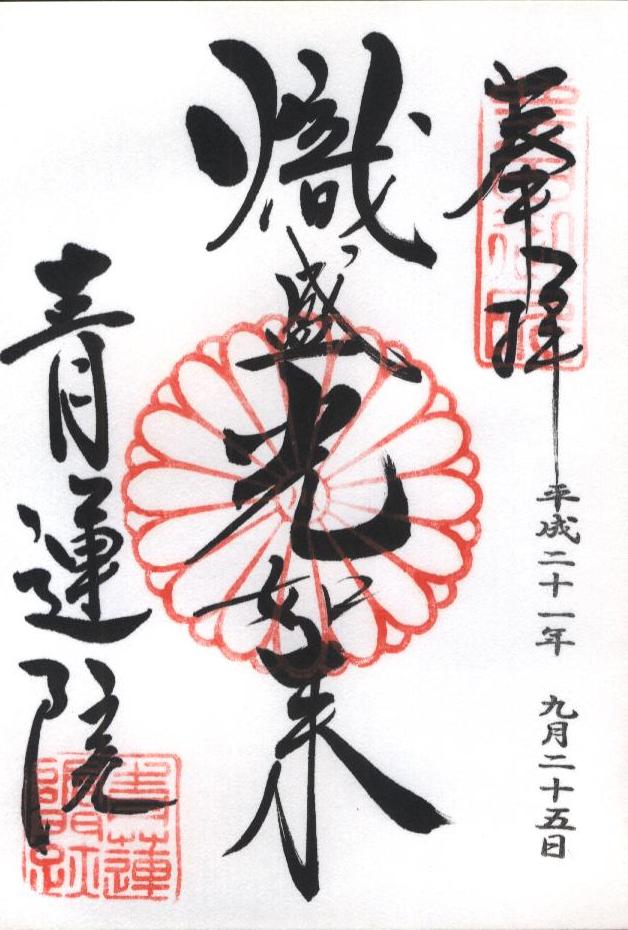 奉拝
平成二十一年 九月二十五日
熾盛光如来
青蓮院
青蓮